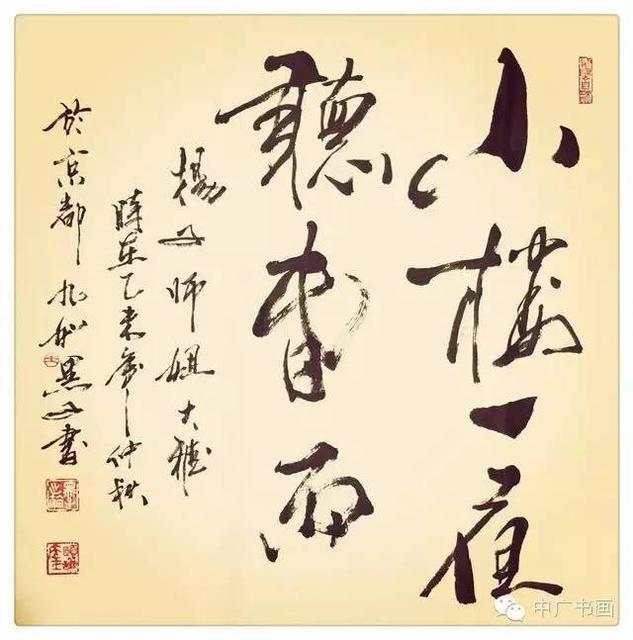 小樓一夜
聽春雨
楊子師姐大雅
時在乙未仲秋
於京都書
中广书画